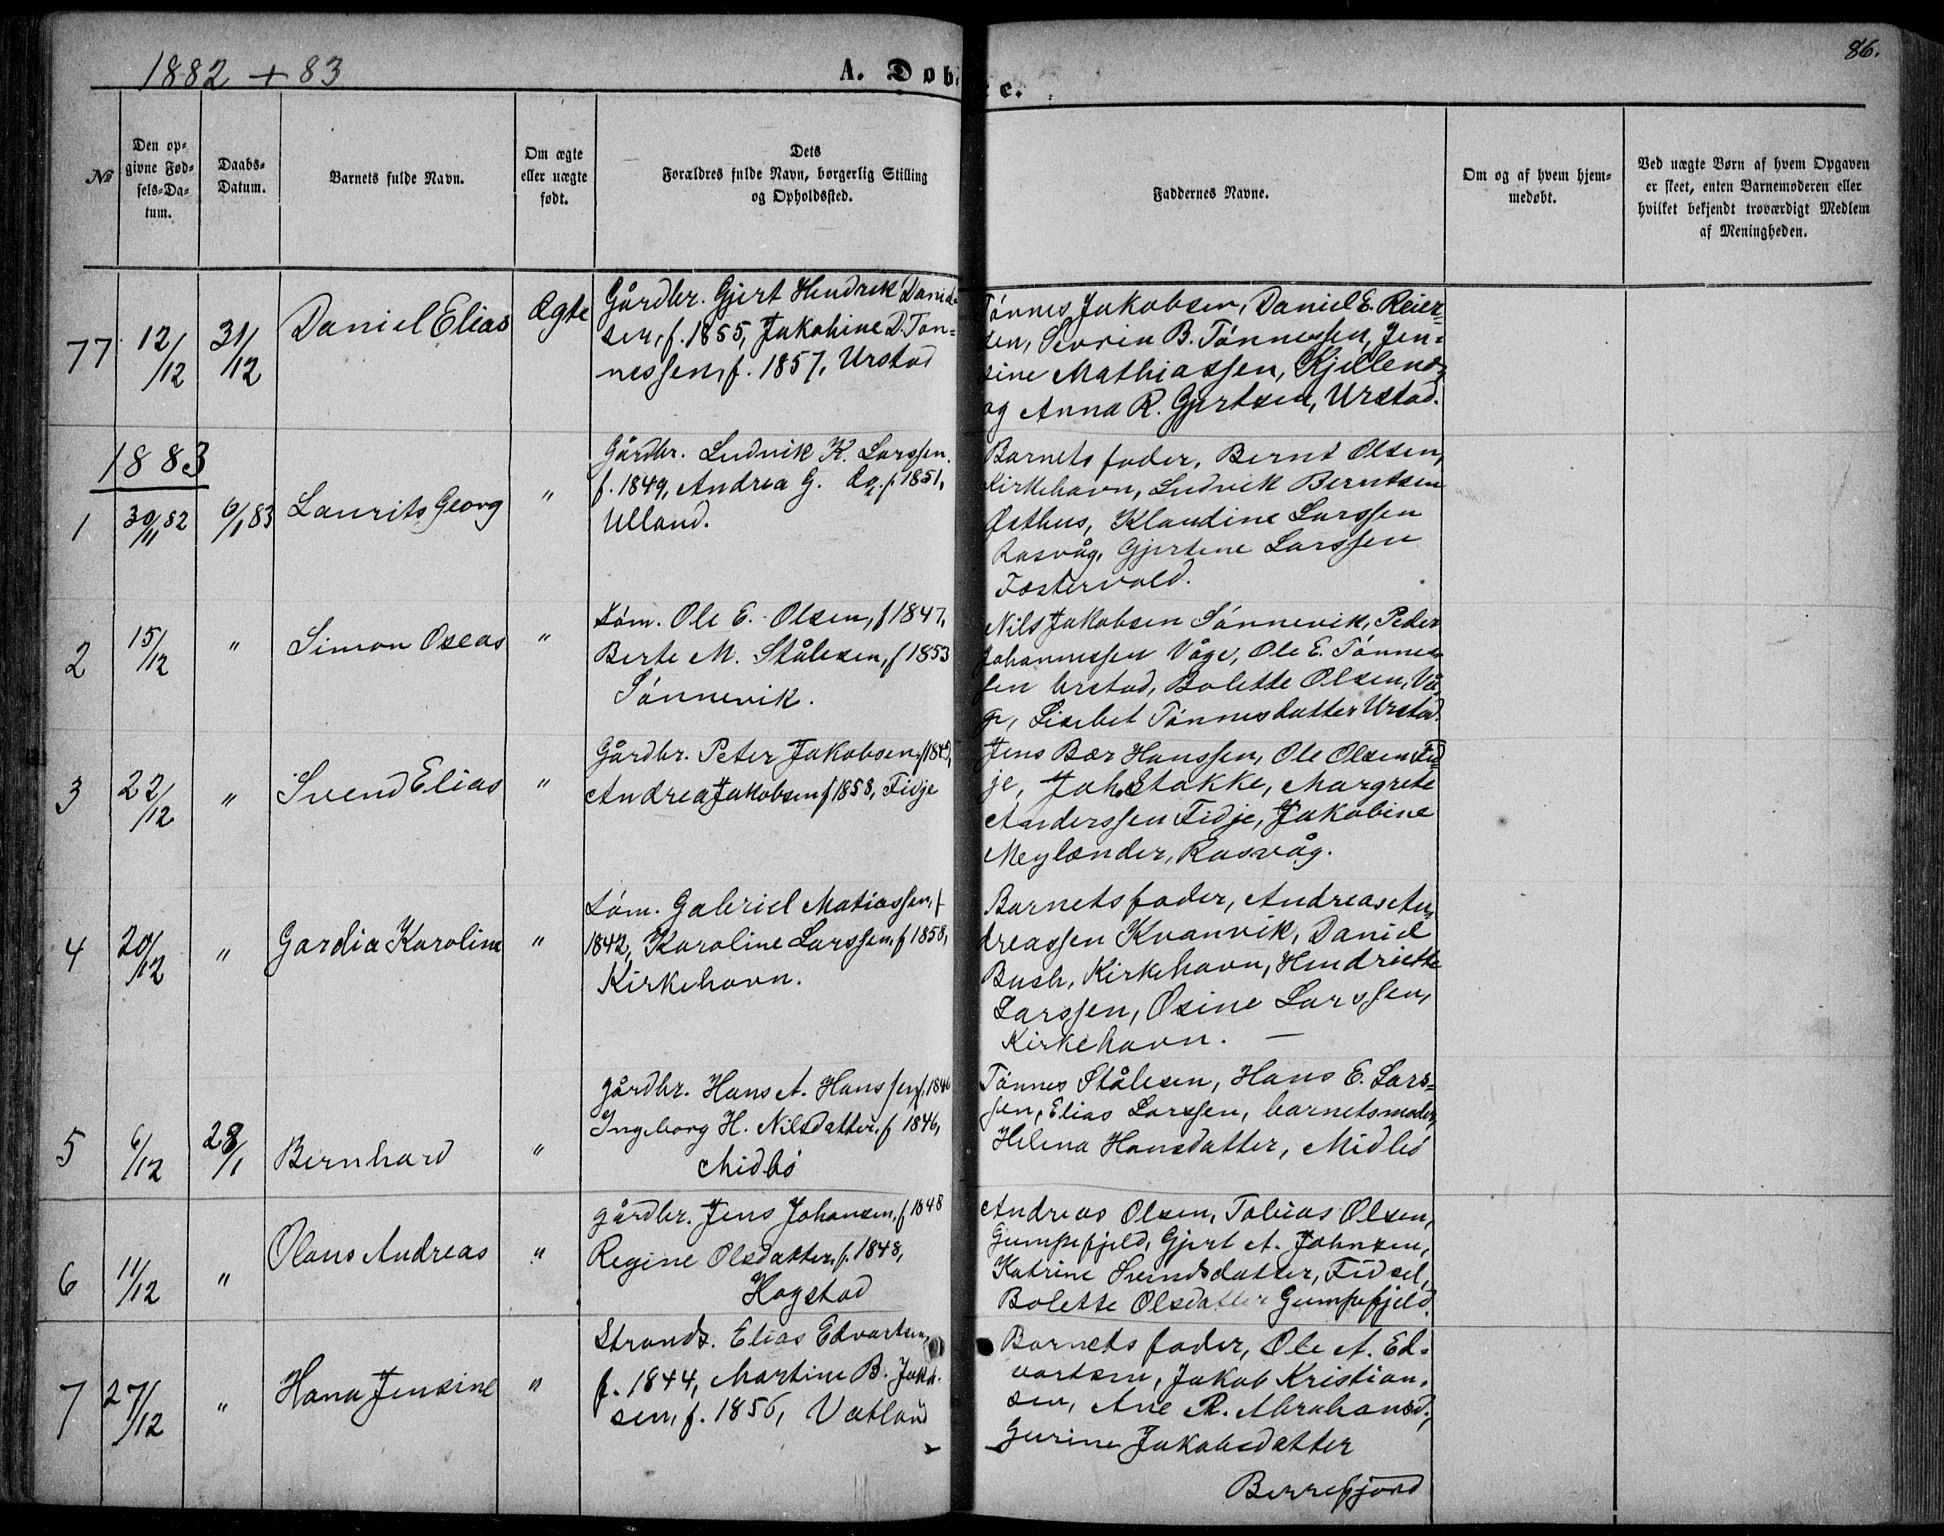 1882 + 83
A. Døbte.
86.
№
Den op-
givne Fød-
sels-Da-
tum.
Daabs-
Datum.
Barnets fulde Navn.
Om ægte
eller uægte
født.
Dets
Forældres fulde Navn, borgerlig Stilling
og Opholdssted.
Faddernes Navne.
Om og af hvem hjem-
medøbt.
Ved uægte Børn af hvem Opgaven
er skeet, enten Barnemoderen eller
hvilket bekjendt troværdigt Medlem
af Menigheden.
77 12/12 31/12 Daniel Elias Ægte
Gårdbr. Gjert Hendrek Daniel-
sen, f. 1855, Jakobine D. Tøn-
nessen, f. 1857, Urstad
Tønnes Jakobsen, Daniel E. Reier-
sen, Sevrin B. Tønnessen, Jen-
sine Mathiassen, Kjelland,
og Anna R. Gjertsen, Urstad.
1883
1 30/11 82 6/1 83 Laurits Georg "
Gårdbr. Ludvik K. Larssen.
f. 1849, Andrea G. f. 1851,
Ulland.
Barnets fader, Bernt Olsen,
Kirkehavn, Ludvik Berntsen
Østhus, Klaudine Larssen
Rasvåg, Gjertine Larssen
Fostervold.
2 15/12 " Simon Oseas "
Søm. Ole E. Olsen, f 1847,
Berte M. Stålesen, f 1853
Sønnevik.
Nils Jakobsen Sønnevik, Peder
Johannessen Våge, Ole E. Tønnes-
sen Urstad, Bolette Olsen, Vå-
ge, Lisebet Tønnesdatter Urstad.
3 22/12 " Svend Elias "
Gårdbr. Peter Jakobsen, f
Andrea Jakobsen f 1858, Fidje
Jens Bær Hanssen, Ole Olsen Fid-
je, Joh. Stakke, Margrete
Anderssen Fidje, Jakobine
Meylænder, Rasvåg.
4 20/12 " Gardia Karoline "
Søm. Gabriel Matiassen, f
1842, Karoline Larssen, f 1858,
Kirkehavn.
Barnets fader, Andreas An-
dreassen Kvanvik, Daniel
Bush, Kirkehavn, Hendriette
Larssen, Osine Larssen,
Kirkehavn. —
5 6/12 28/1 Bernhard "
gårdbr. Hans A. Hanssen, f. 1846
Ingeborg H. Nilsdatter, f 1846,
Midbø
Tønnes Stålesen, Hans E. Lars-
sen, Elias Larssen, barnetsmoder,
Helena Hansdatter, Midbø
6 11/12 " Olaus Andreas "
gårdbr. Jens Johansen, f 1848
Regine Olsdatter, f. 1848,
Hogstad
Andreas Olsen, Tobias Olsen,
Gumpefjeld, Gjert A. Johnsen,
Katrine Svendsdatter, Fidsel,
Bolette Olsdatter Gumpefjeld.
7 27/12 " Hana Jensine "
Strands. Elias Edvartsen,
f. 1844, Martine B. Jakob-
sen, f. 1856, Vatland
Barnets fader, Ole A. Ed-
vartsen, Jakob Kristian-
sen, Ane R. Abrahamsd.,
Gurine Jakobsdatter
Berrefjord